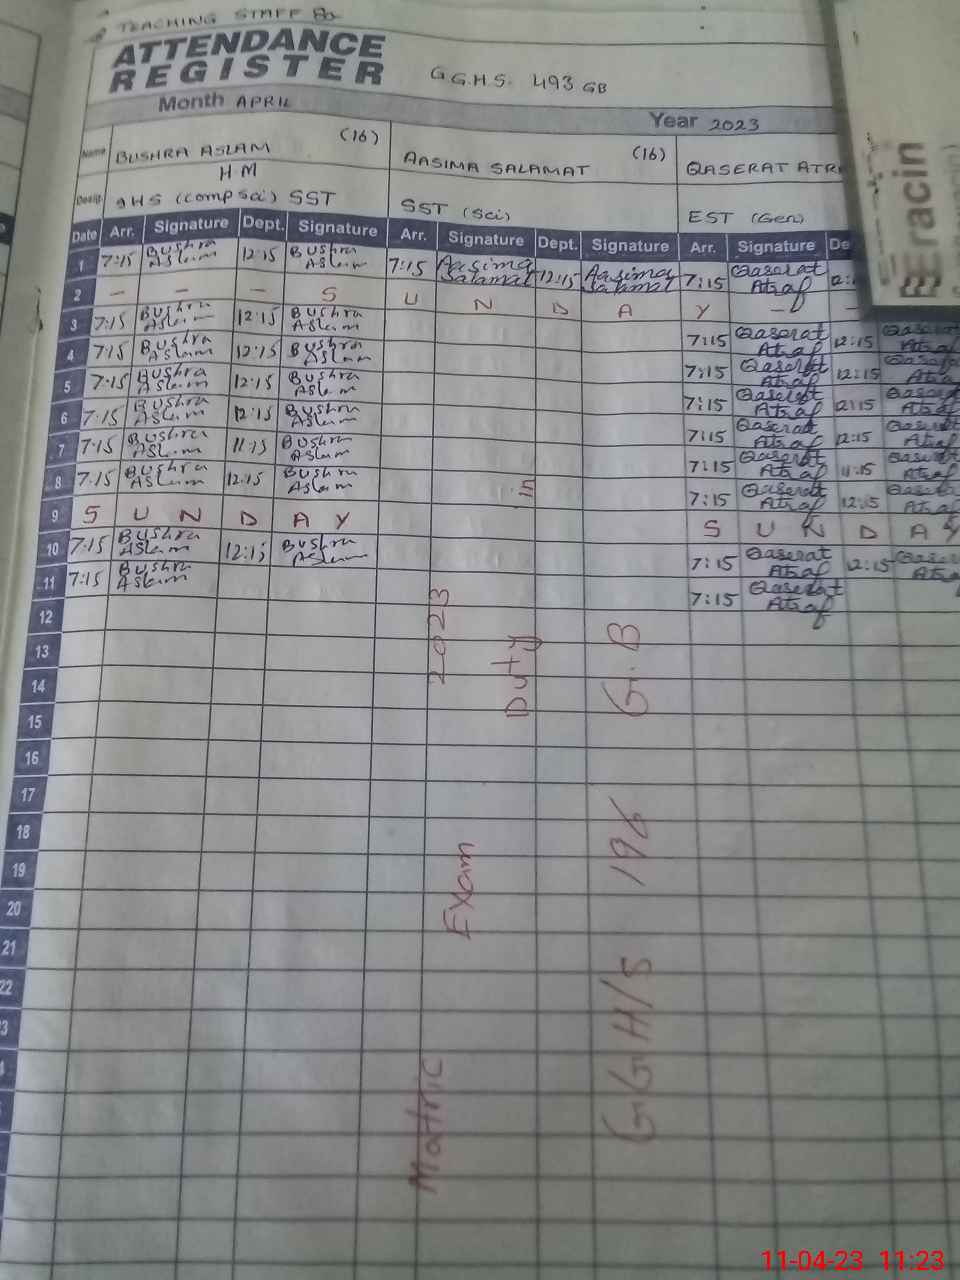 TEACHING STAFF
ATTENDANCE
REGISTER
G.G.H.S. 493 GB
Month APRIL
Year 2023
Name BUSHRA ASLAM (16) AASIMA SALAMAT (16) QASERAT
HM
Desig. SST SST (Sci) EST (Gen)
Date Arr. Signature Dept. Signature Arr. Signature Dept. Signature Arr. Signature De
1 7:15 Bushra Aslam 12:15 Bushra Aslam 7:15 Aasima Salamat 12:15 Aasima Salamat 7:15 Qaserat Atraf
2 — — — S U N D A Y — —
3 7:15 Bushra Aslam 12:15 Bushra Aslam 7:15 Qaserat Atraf 12:15 Qaserat Atraf
4 7:15 Bushra Aslam 12:15 Bushra Aslam 7:15 Qaserat Atraf 12:15 Qaserat Atraf
5 7:15 Bushra Aslam 12:15 Bushra Aslam 7:15 Qaserat Atraf 12:15 Qaserat Atraf
6 7:15 Bushra Aslam 12:15 Bushra Aslam 7:15 Qaserat Atraf 12:15 Qaserat Atraf
7 7:15 Bushra Aslam 11:15 Bushra Aslam 7:15 Qaserat Atraf 11:15 Qaserat Atraf
8 7:15 Bushra Aslam 12:15 Bushra Aslam 7:15 Qaserat Atraf 12:15 Qaserat
9 S U N D A Y S U N D A Y
10 7:15 Bushra Aslam 12:15 Bushra Aslam 7:15 Qaserat Atraf 12:15 Qaserat Atraf
11 7:15 Bushra Aslam 7:15 Qaserat Atraf
12
13
14
15
16
17
18
19
20
21
22
Matric Exam 2023
Duty
GGH/S 196 G.B
Eracin
11-04-23 11:23